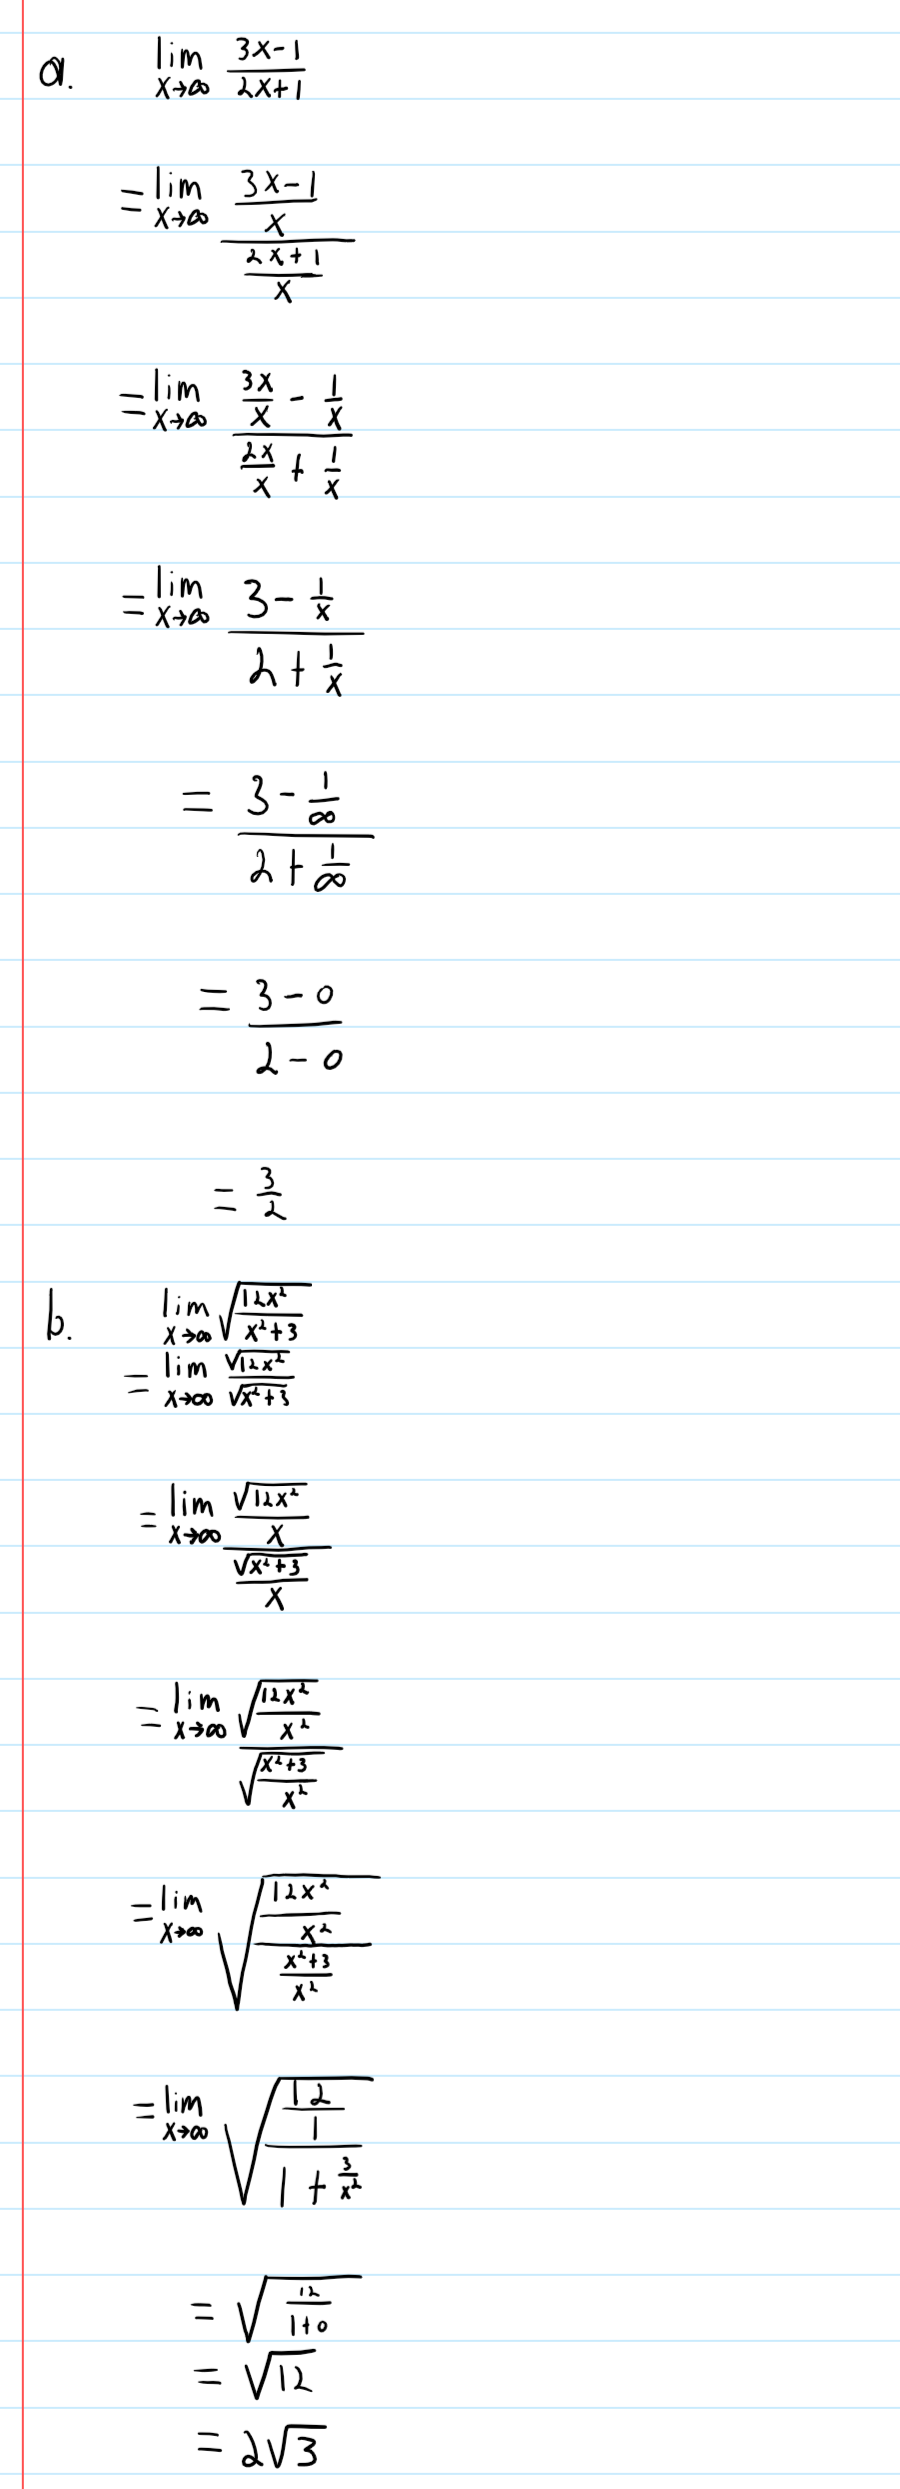 a. lim x→∞ (3x-1)/(2x+1)
= lim x→∞ ((3x-1)/x)/((2x+1)/x)
= lim x→∞ (3x/x - 1/x)/(2x/x + 1/x)
= lim x→∞ (3 - 1/x)/(2 + 1/x)
= (3 - 1/∞)/(2 + 1/∞)
= (3-0)/(2-0)
= 3/2
b. lim x→∞ √(12x²/(x²+3))
= lim x→∞ √(12x²)/√(x²+3)
= lim x→∞ (√(12x²)/x)/(√(x²+3)/x)
= lim x→∞ √(12x²/x²)/√((x²+3)/x²)
= lim x→∞ √((12x²/x²)/((x²+3)/x²))
= lim x→∞ √((12/1)/(1 + 3/x²))
= √(12/(1+0))
= √12
= 2√3